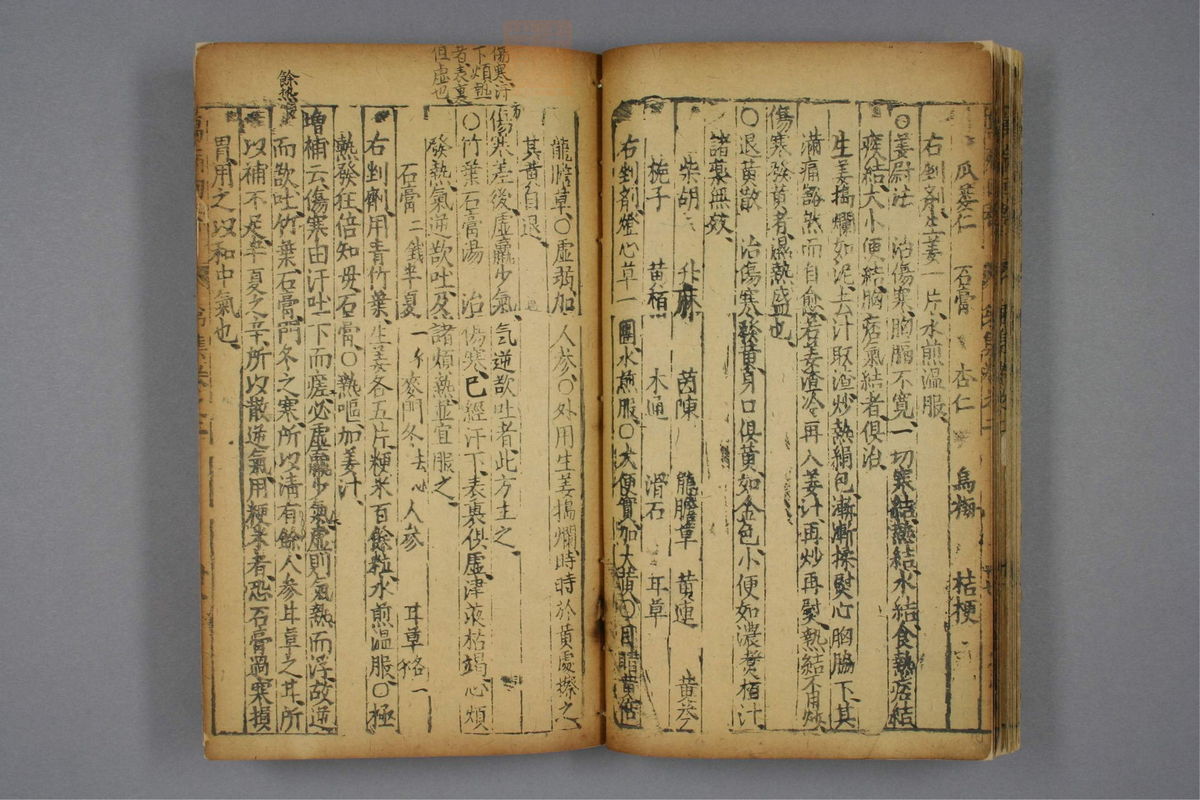 瓜蔞仁　石膏　杏仁　烏梅　枯梗
右剉劑生姜一片水煎温服
○姜尉法　治傷寒胸膈不寬一切寒結熱結水結食結痞結
痰結大小便結胸痞氣結者俱治
生姜搗爛如泥去汁取渣炒熱絹包漸漸揉熨心胸脇下其
滿痛豁然而自愈若姜渣冷再入姜汁再炒再熨熱結不用炒
傷寒發黄者濕熱盛也
○退黄散　治傷寒發黄身口俱黄如金色小便如濃煑栢汁
諸藥無效
柴胡　升麻　茵陳　龍膽草　黄連　黄芩
梔子　黄栢　木通　滑石　甘草
右剉劑燈心草一團水煎服○大便實加大黄○目睛黄倍
龍膽草○虚弱加人參○外用生姜搗爛時時於黄處擦之
其黄自退
傷寒差後虚羸少氣气逆欲吐者此方主之
○竹葉石膏湯　治傷寒已經汗下表裏俱虚津液枯竭心煩
發熱氣逆欲吐及諸煩熱並宜服之
石膏二錢半夏一个麥門冬去心人參　甘草各一
右剉劑用青竹葉生姜各五片粳米百餘粒水煎温服○極
熱發狂倍知母石膏○熱嘔加姜汁
增補云傷寒由汗吐下而瘥必虚羸少氣虚則氣熱而浮故逆
而欲吐竹葉石膏門冬之寒所以清有餘人參甘草之甘所
以補不足半夏之辛所以散逆氣用粳米者恐石膏過寒損
胃用之以和中氣也
傷寒汗
下煩熱
者表裏
但虚也
餘熱